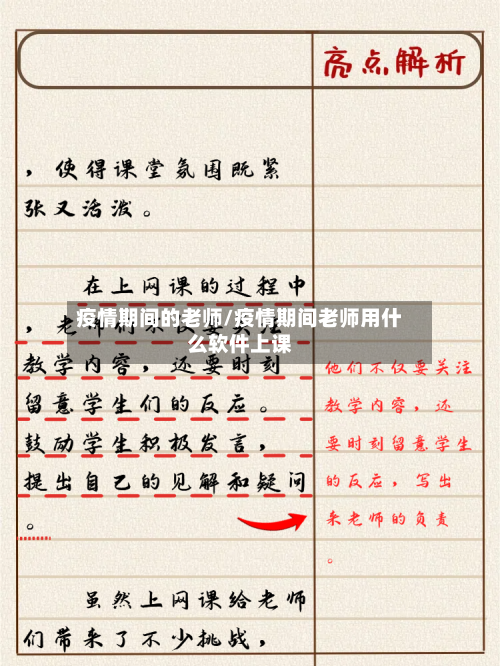 亮点解析
，使得课堂氛围既紧
张又活泼。
在上网课的过程中
，老师们不仅要关注
疫情期间的老师/疫情期间老师用什
么软件上课
教学内容，还要时刻
留意学生们的反应。
鼓励学生积极发言，
提出自己的见解和疑问
。
他们不仅要关注
教学内容，还
要时刻留意学生
的反应，写出
来老师的负责
。
虽然上网课给老师
们带来了不少挑战，